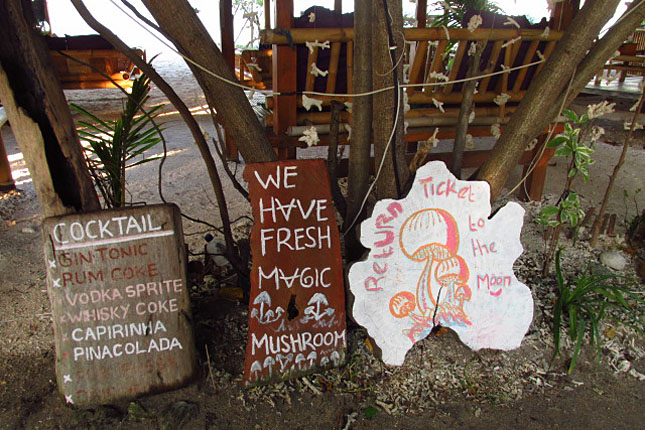 COCKTAIL
GIN TONIC
RUM COKE
VODKA SPRITE
WHISKY COKE
CAPIRINHA
PINACOLADA
WE
HAVE
FRESH
MAGIC
MUSHROOM
RETURN TICKET to
the
Moon